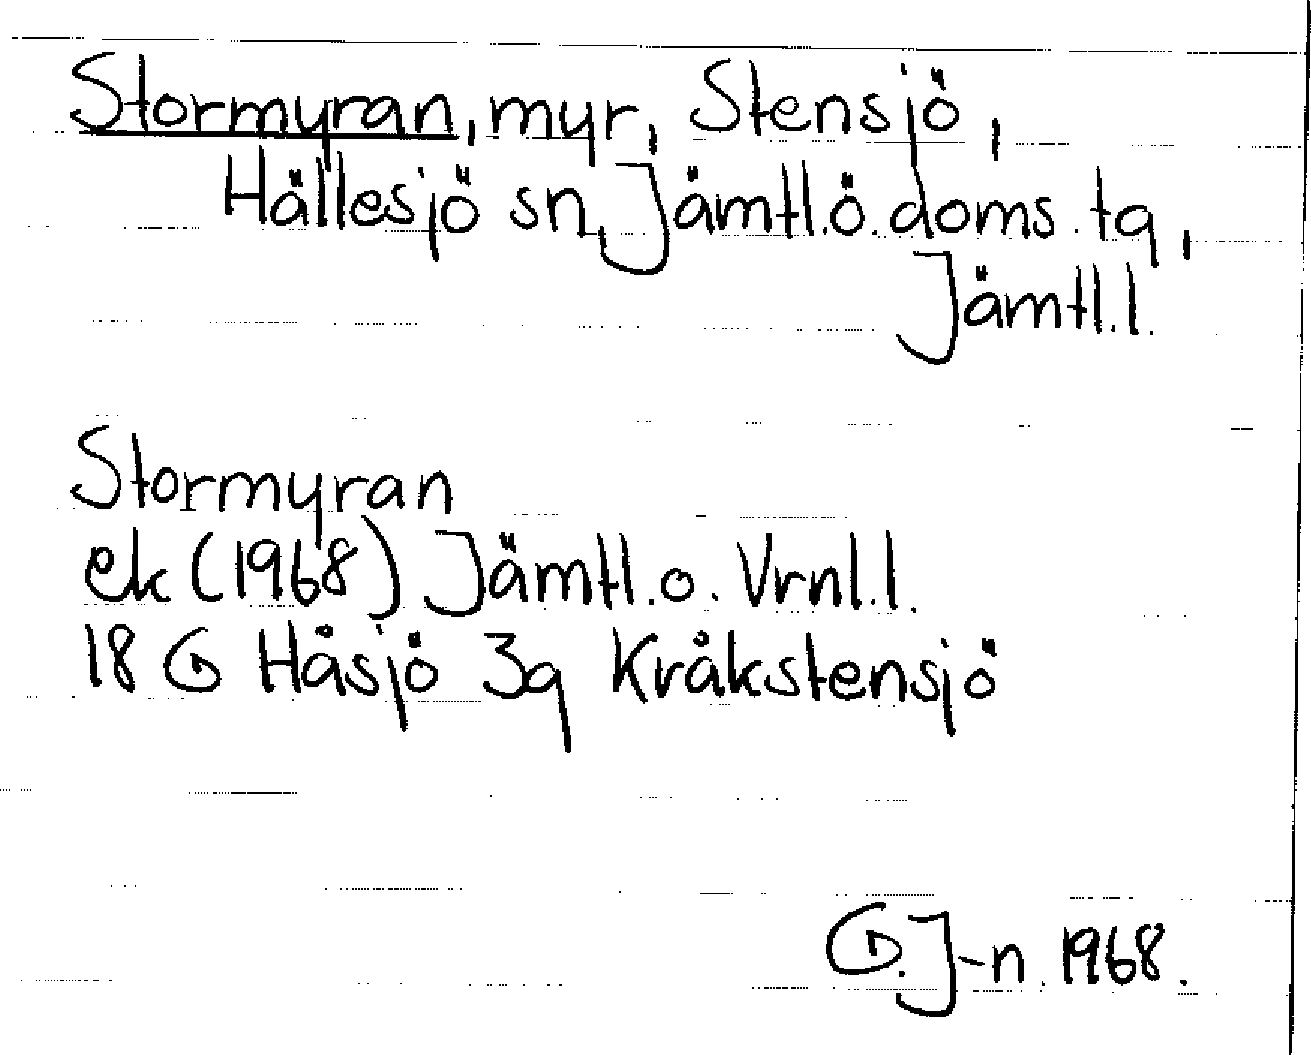 Stormyran, myr, Stensjö,
Hällesjö sn, Jämtl.ö. doms. tg,
Jämtl.l.
Stormyran
ek (1968) Jämtl. o. Vrnl.l.
18 G Håsjö 3g Kråkstensjö
G. J-n. 1968.